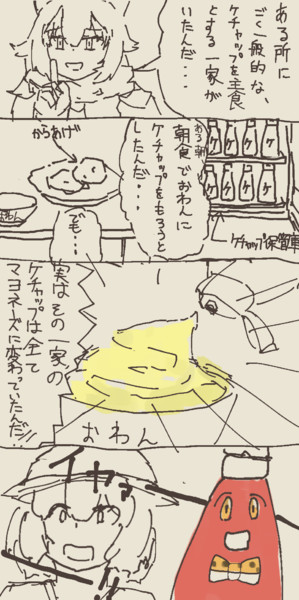 ある所に
ごく一般的な、
ケチャップを主食
とする一家が
いたんだ・・・
からあげ
ある朝、
朝食でおわんに
ケチャップをもろうと
したんだ・・・
でも…
ケ ケ ケ ケ
ケ ケ ケ ケ
ケチャップ保管庫
おわん
実はその一家の
ケチャップは全て
マヨネーズに変わっていたんだ!!
おわん